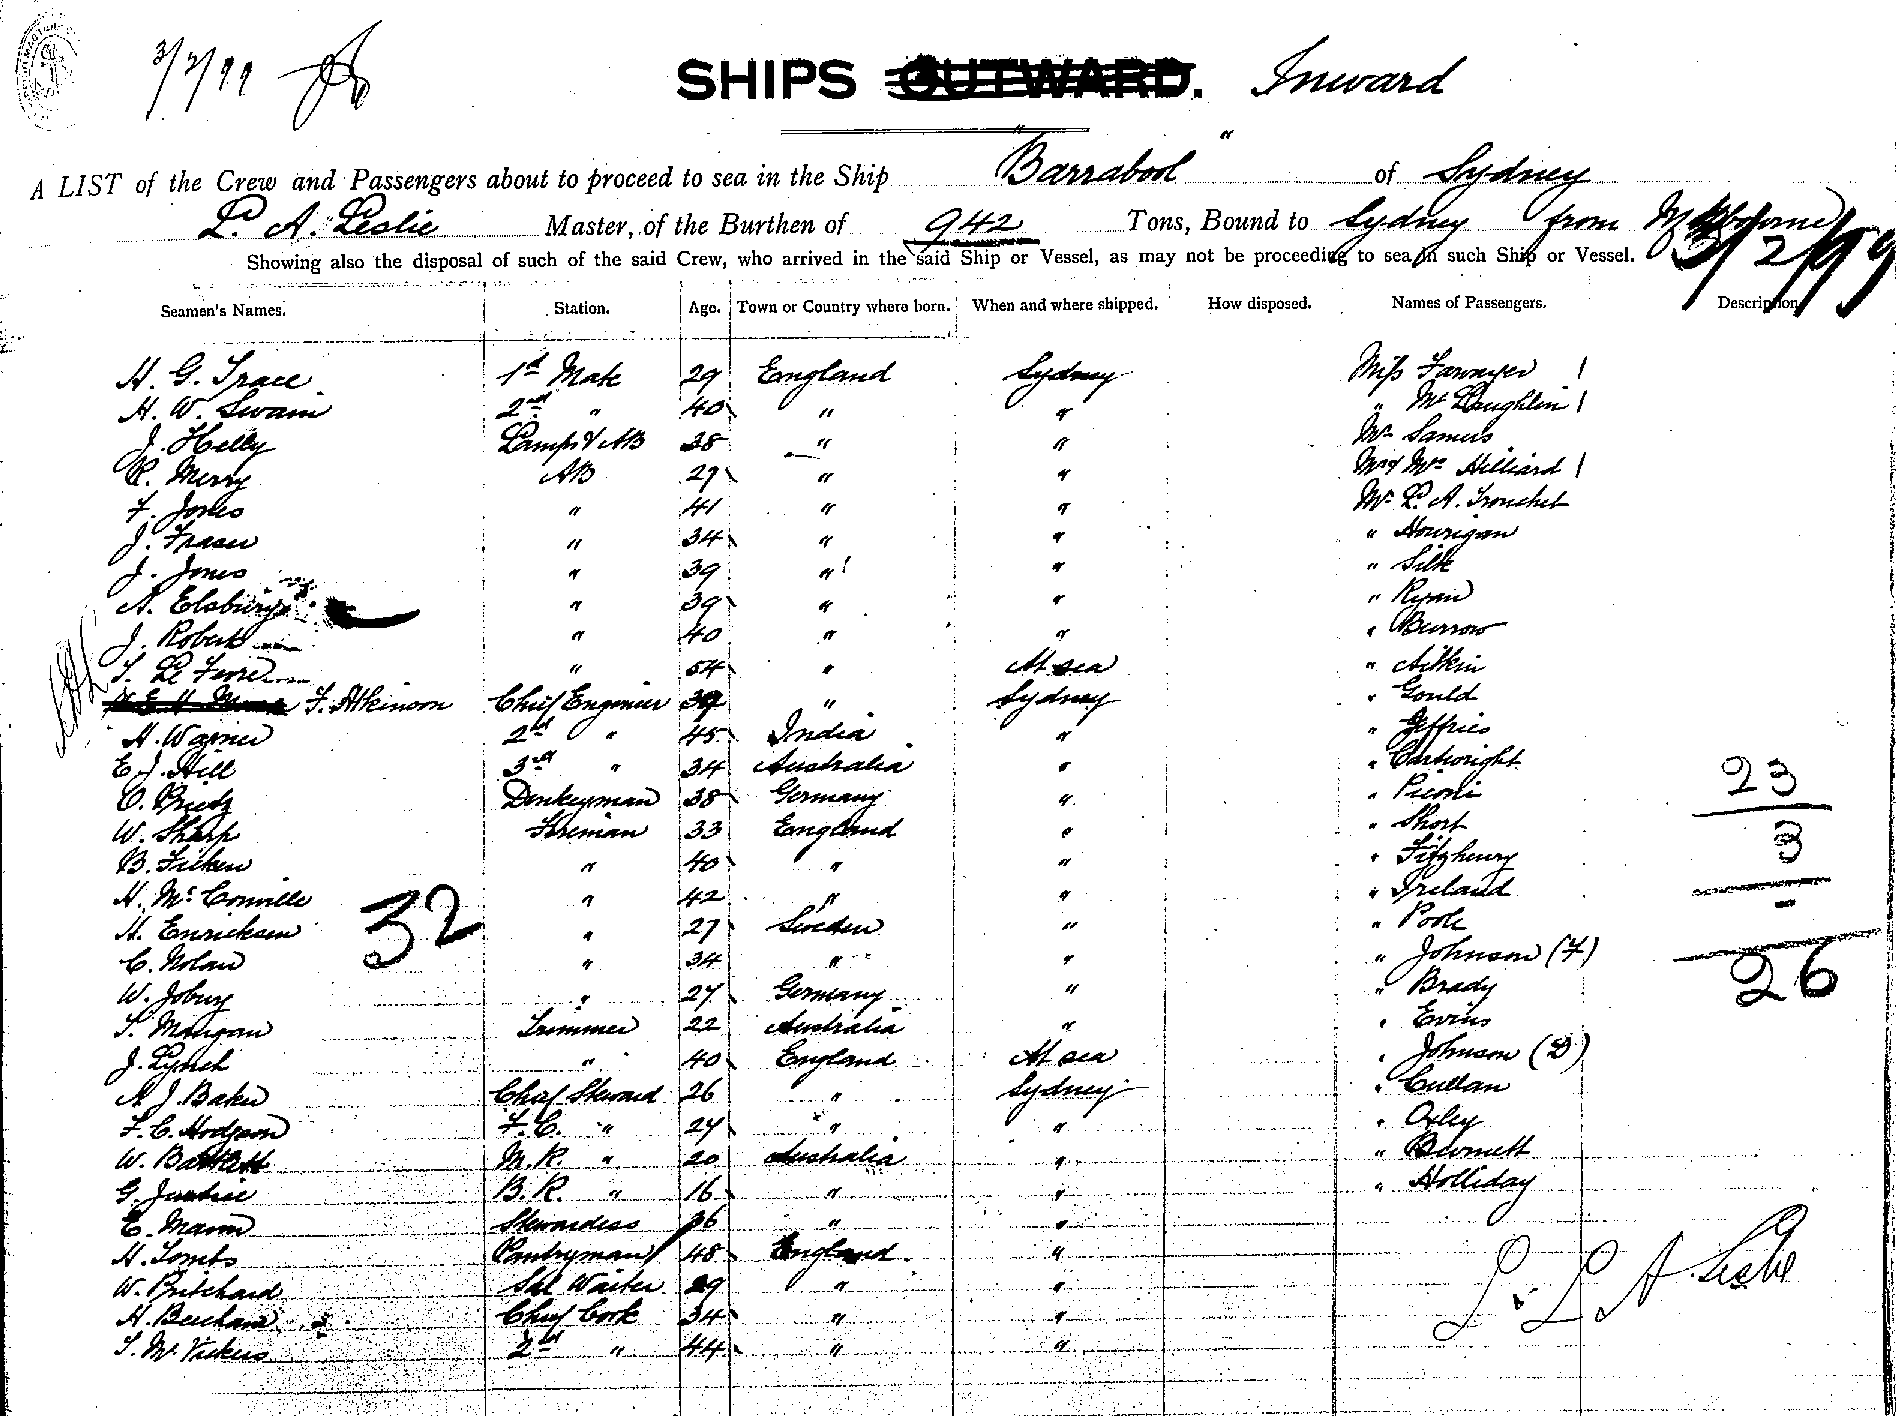 3/2/99
SHIPS OUTWARD. Inward
A LIST of the Crew and Passengers about to proceed to sea in the Ship "Barrabool" of Sydney
L. A. Leslie Master, of the Burthen of 942 Tons, Bound to Sydney from Melbourne
3/2/99
Showing also the disposal of such of the said Crew, who arrived in the said Ship or Vessel, as may not be proceeding to sea in such Ship or Vessel.
Seamen's Names. Station. Age. Town or Country where born. When and where shipped. How disposed. Names of Passengers. Description
H. G. Trace 1st Mate 29 England Sydney Miss Sawnyer 1
H. W. Swain 2nd " 40 " " " McLaughlin 1
J. Helly Lamps & AB 38 " " Mr Samers
R. Merry AB 29 " " Mr & Mrs Hilliard 1
F. Jones " 41 " " Mr L. A. Trouchet
J. Fraser " 34 " " " Hourigan
J. Jones " 39 " " " Silk
A. Elsbury " 39 " " " Ryan
J. Robert " 40 " " " Burrow
T. Le Fevre " 54 " At sea " Aitkin
F. Atkinson Chief Engineer 39 " Sydney " Gould
H. Warner 2nd " 45 India " " Jeffries
E. J. Hill 3rd " 34 Australia " " Cartwright
O. Brietz Donkeyman 38 Germany " " Picone 23
W. Sharp Fireman 33 England " " Short
B. Ficken " 40 " " " Fitzhenry 3
H. McConville " 42 " " " Ireland
H. Enricksen 32 " 27 Sweden " " Poole
C. Nolan " 34 " " " Johnson (F)
W. Jobury " 27 Germany " " Brady 26
T. Mangan Trimmer 22 Australia " " Evins
J. Lynch " 40 England At sea " Johnson (D)
A. J. Baker Chief Steward 26 " Sydney " Cullan
F. C. Hodgson F. C. " 24 " " " Oxley
W. Bartlett M. R. " 20 Australia " " Bennett
G. Justice B. R. " 16 " " " Holliday
E. Mann Stewardess 36 " "
H. Tombs Pantryman 48 England "
W. Pritchard Sal Waiter 29 " "
H. Beecham Chief Cook 34 " "
T. McVickers 2nd " 44 " "
L. A. Leslie